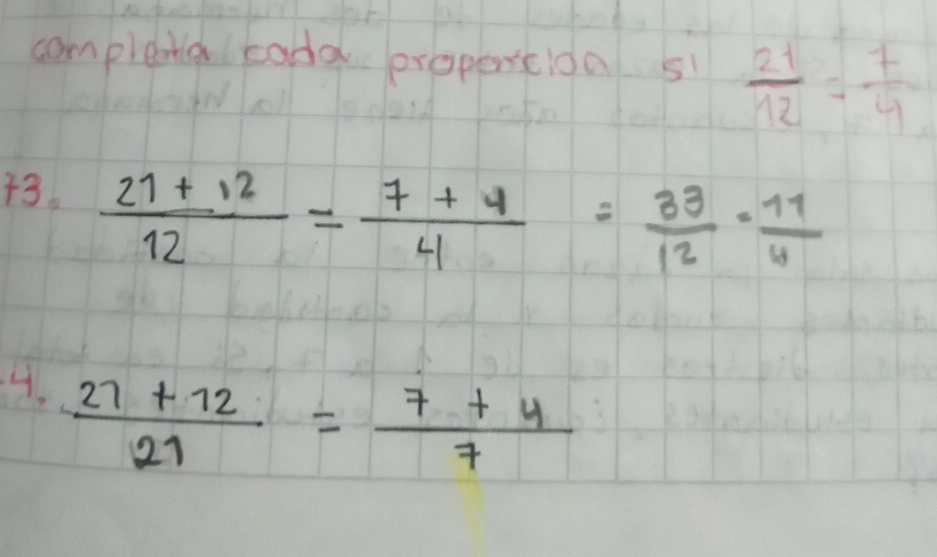 completa cada proporcion si 21/12 = 7/4
73. (21 + 12)/12 = (7 + 4)/4 = 33/12 = 11/4
4. (21 + 12)/21 = (7 + 4)/7